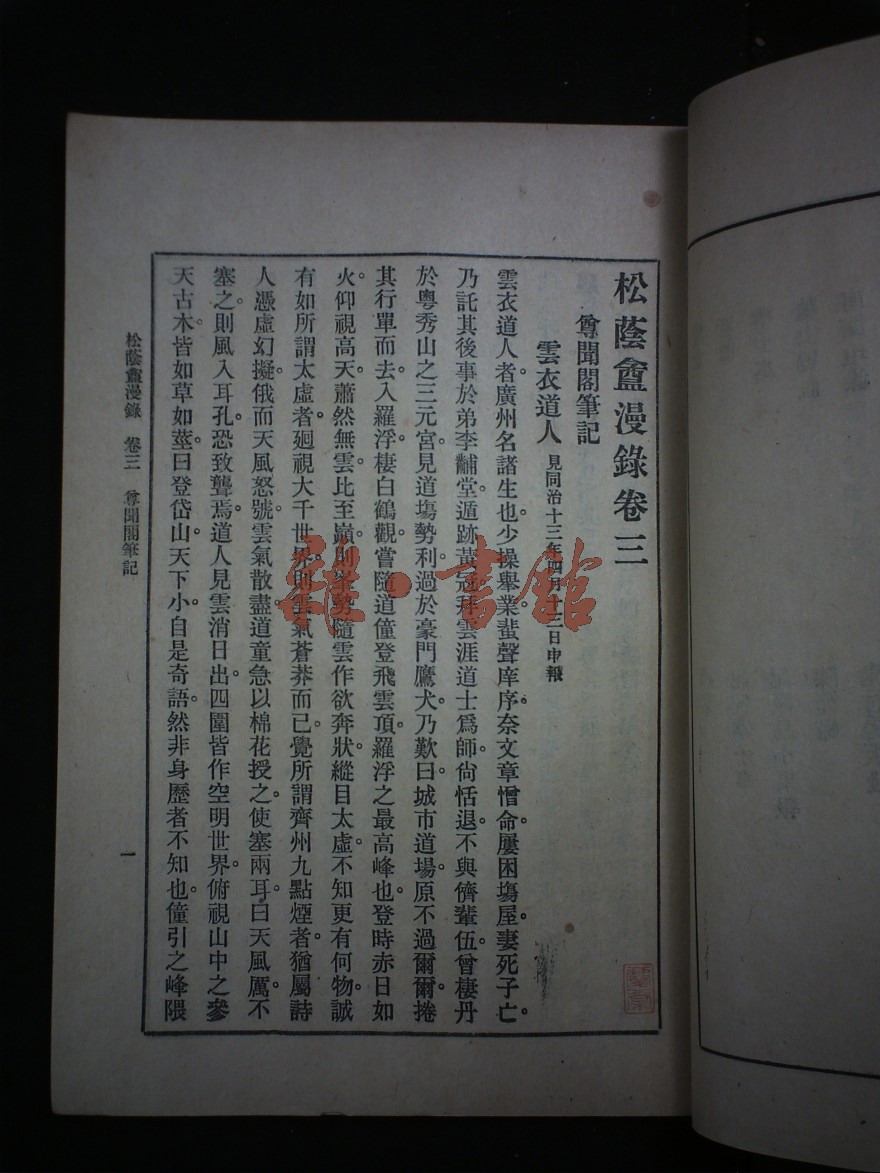 松蔭盦漫錄卷三
尊聞閣筆記
雲衣道人 見同治十三年四月十三日申報
雲衣道人者廣州名諸生也少操舉業蜚聲庠序奈文章憎命屢困塲屋妻死子亡
乃託其後事於弟李黼堂遁跡黃冠拜雲涯道士爲師尙恬退不與儕輩伍曾棲丹
於粵秀山之三元宮見道塲勢利過於豪門鷹犬乃歎曰城市道場原不過爾爾捲
其行單而去入羅浮棲白鶴觀嘗隨道僮登飛雲頂羅浮之最高峰也登時赤日如
火仰視高天蕭然無雲比至巓則峯勢隨雲作欲奔狀縱目太虛不知更有何物誠
有如所謂太虛者廻視大千世界則雲氣蒼莽而已覺所謂齊州九點煙者猶屬詩
人憑虛幻擬俄而天風怒號雲氣散盡道童急以棉花授之使塞兩耳曰天風厲不
塞之則風入耳孔恐致聾焉道人見雲消日出四圍皆作空明世界俯視山中之參
天古木皆如草如莖曰登岱山天下小自是奇語然非身歷者不知也僮引之峰隈
松蔭盦漫錄 卷三 尊聞閣筆記 一
雜·書館